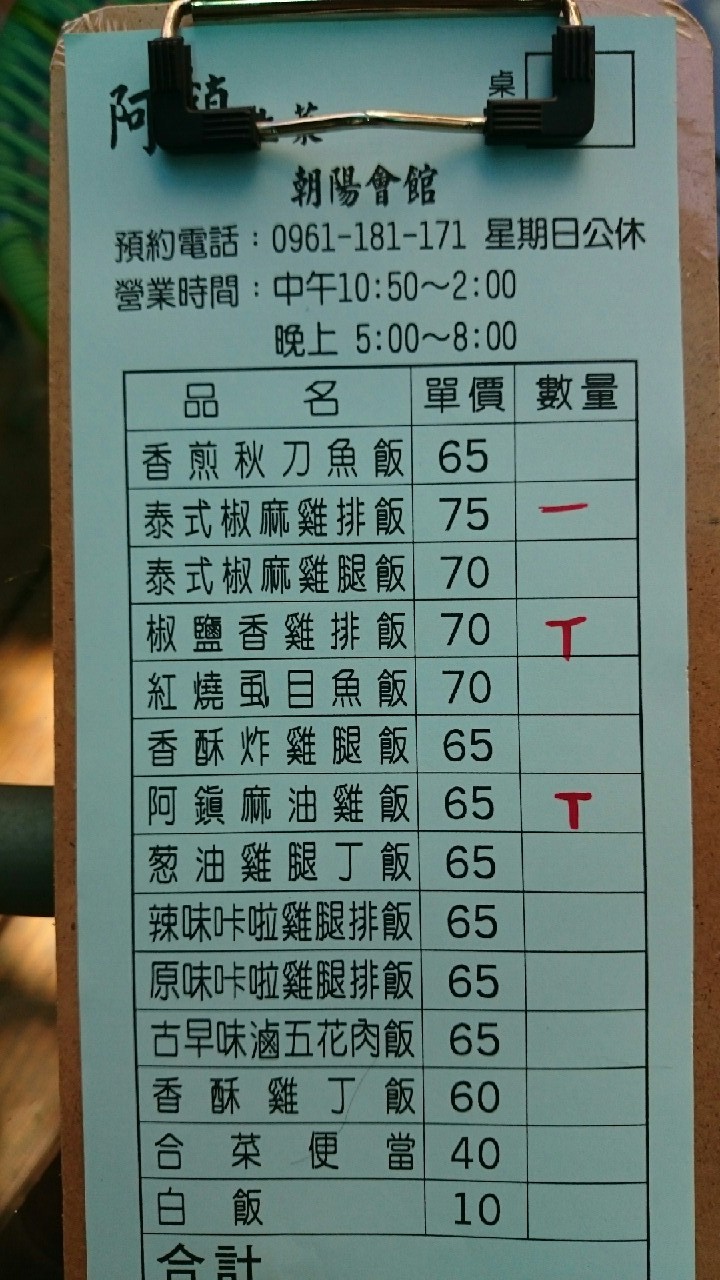 阿鎮 菜
桌
朝陽會館
預約電話：0961-181-171 星期日公休
營業時間：中午10:50～2:00
晚上 5:00～8:00
品名 單價 數量
香煎秋刀魚飯 65
泰式椒麻雞排飯 75 一
泰式椒麻雞腿飯 70
椒鹽香雞排飯 70 T
紅燒虱目魚飯 70
香酥炸雞腿飯 65
阿鎮麻油雞飯 65 T
葱油雞腿丁飯 65
辣味咔啦雞腿排飯 65
原味咔啦雞腿排飯 65
古早味滷五花肉飯 65
香酥雞丁飯 60
合菜便當 40
白飯 10
合計